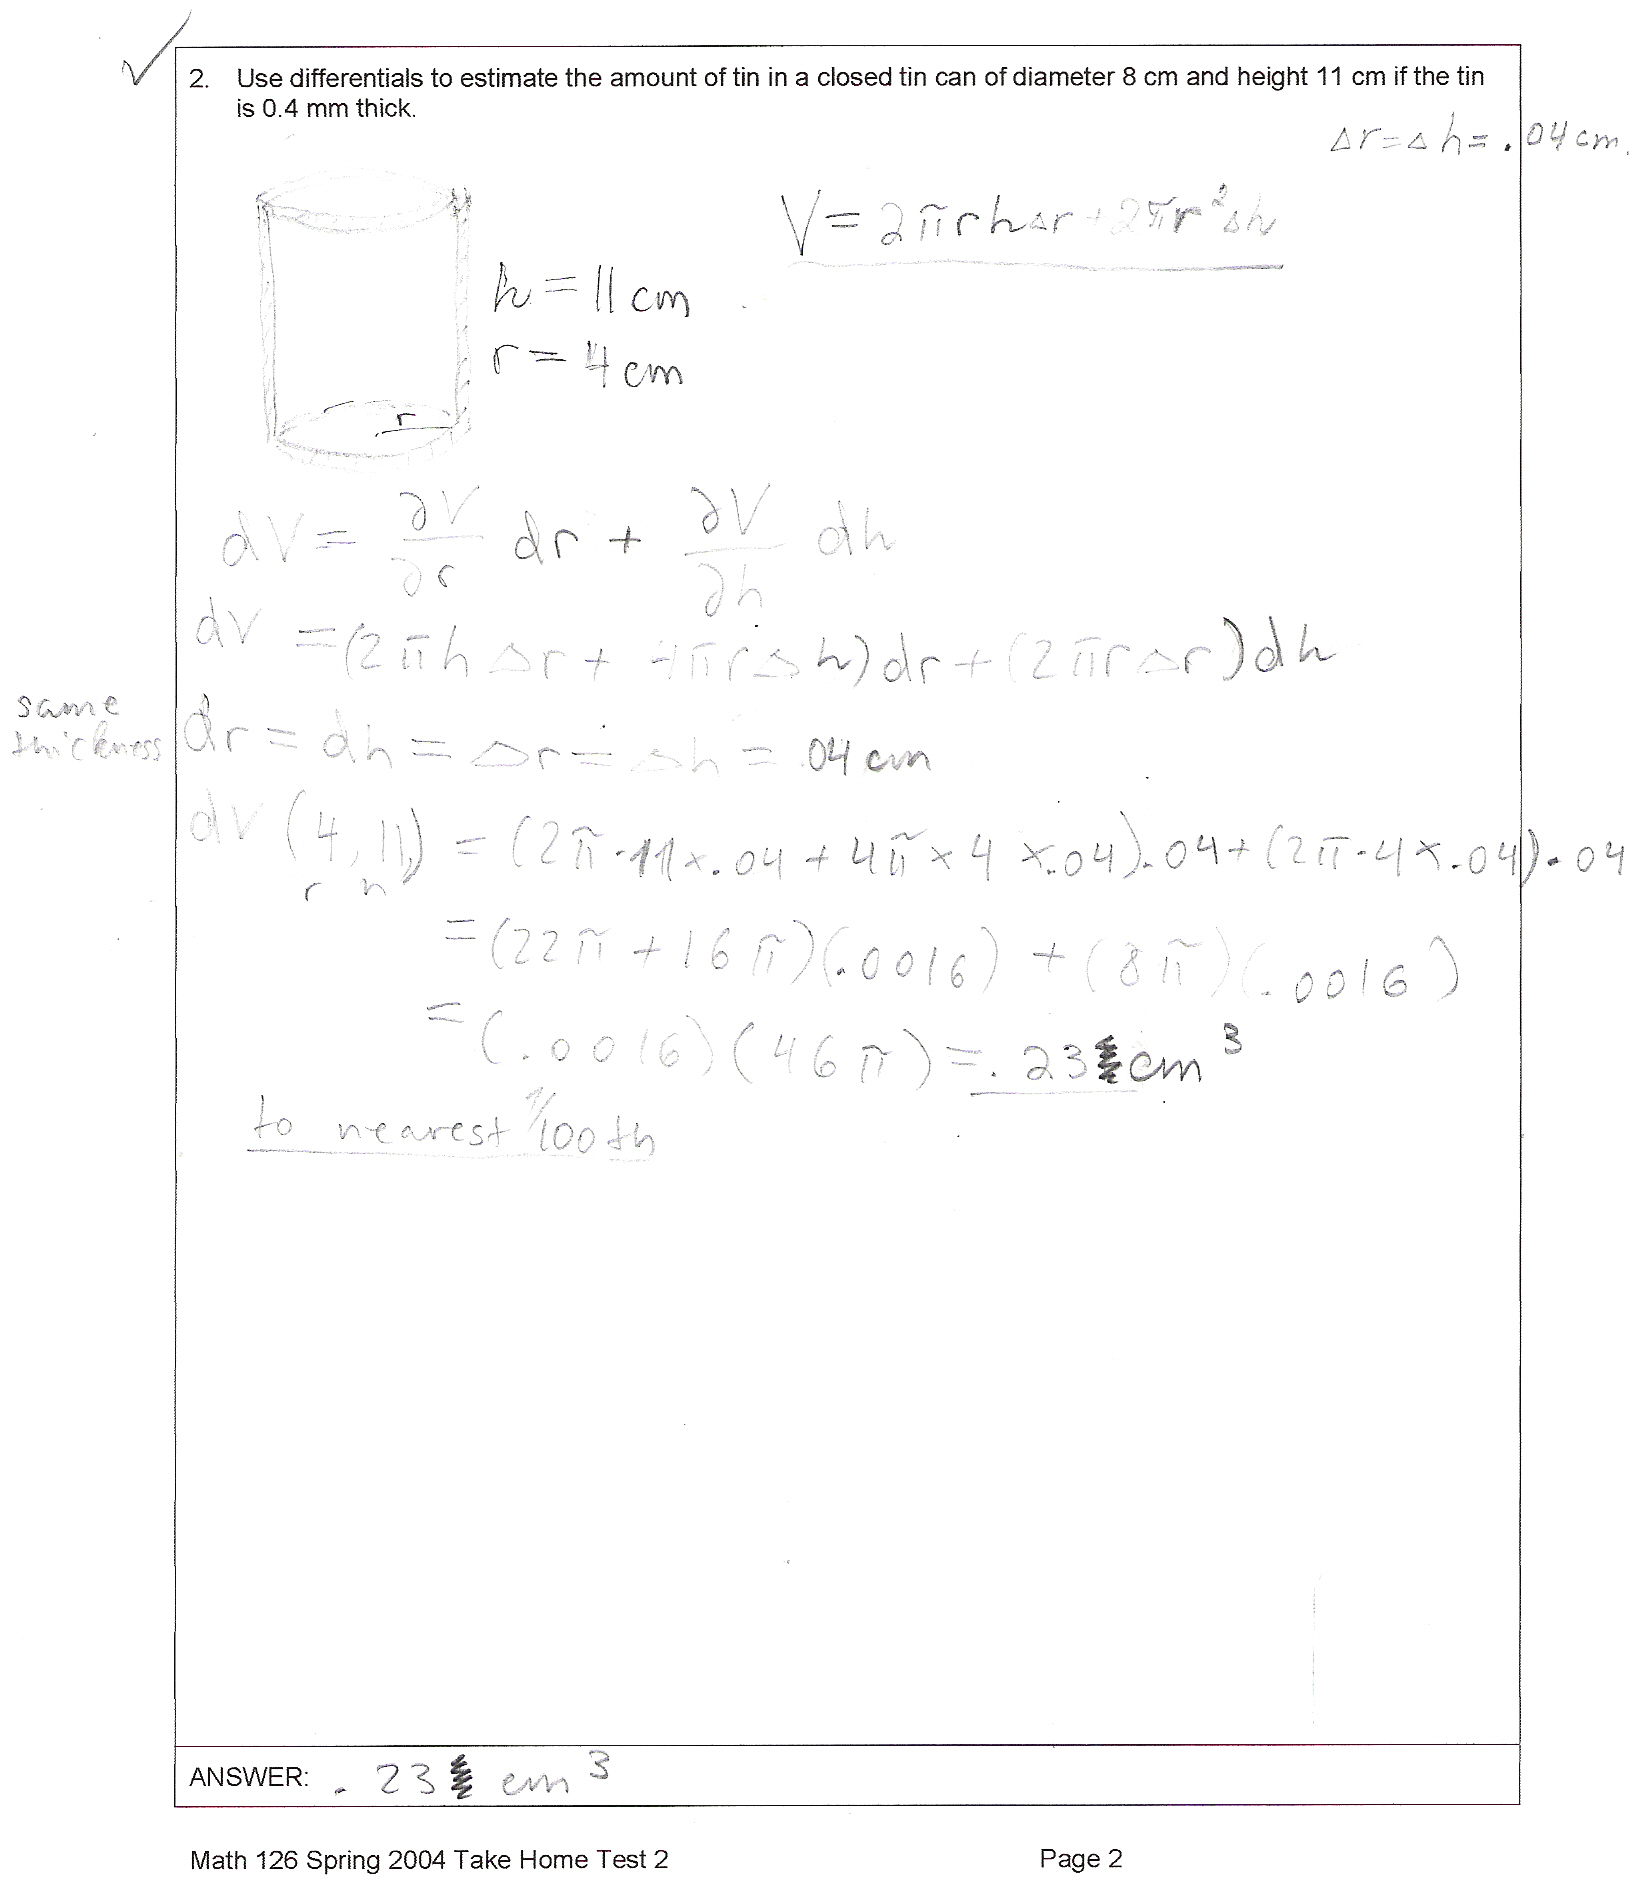 2. Use differentials to estimate the amount of tin in a closed tin can of diameter 8 cm and height 11 cm if the tin
is 0.4 mm thick.
Δr=Δh=.04cm.
V=2πrhΔr+2πr²Δh
h=11cm
r=4cm
r
dV= ∂V/∂r dr + ∂V/∂h dh
dV =(2πhΔr+4πrΔh)dr+(2πrΔr)dh
same
thickness
dr=dh=Δr=Δh=.04cm
dV(4,11)=(2π·11×.04+4π×4×.04)·.04+(2π·4×.04)·.04
r h
=(22π+16π)(.0016)+(8π)(.0016)
=(.0016)(46π)=.23cm³
to nearest 1/100th
ANSWER: .23 cm³
Math 126 Spring 2004 Take Home Test 2
Page 2